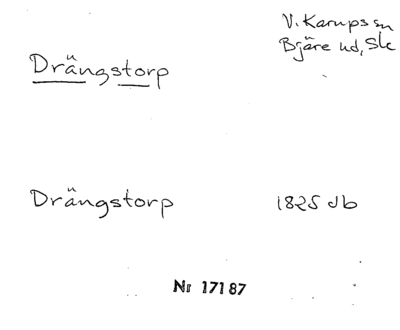 V. Karups sn
Bjäre hd, Sk
Drängstorp
Drängstorp 1825 Jb
Nr 17187